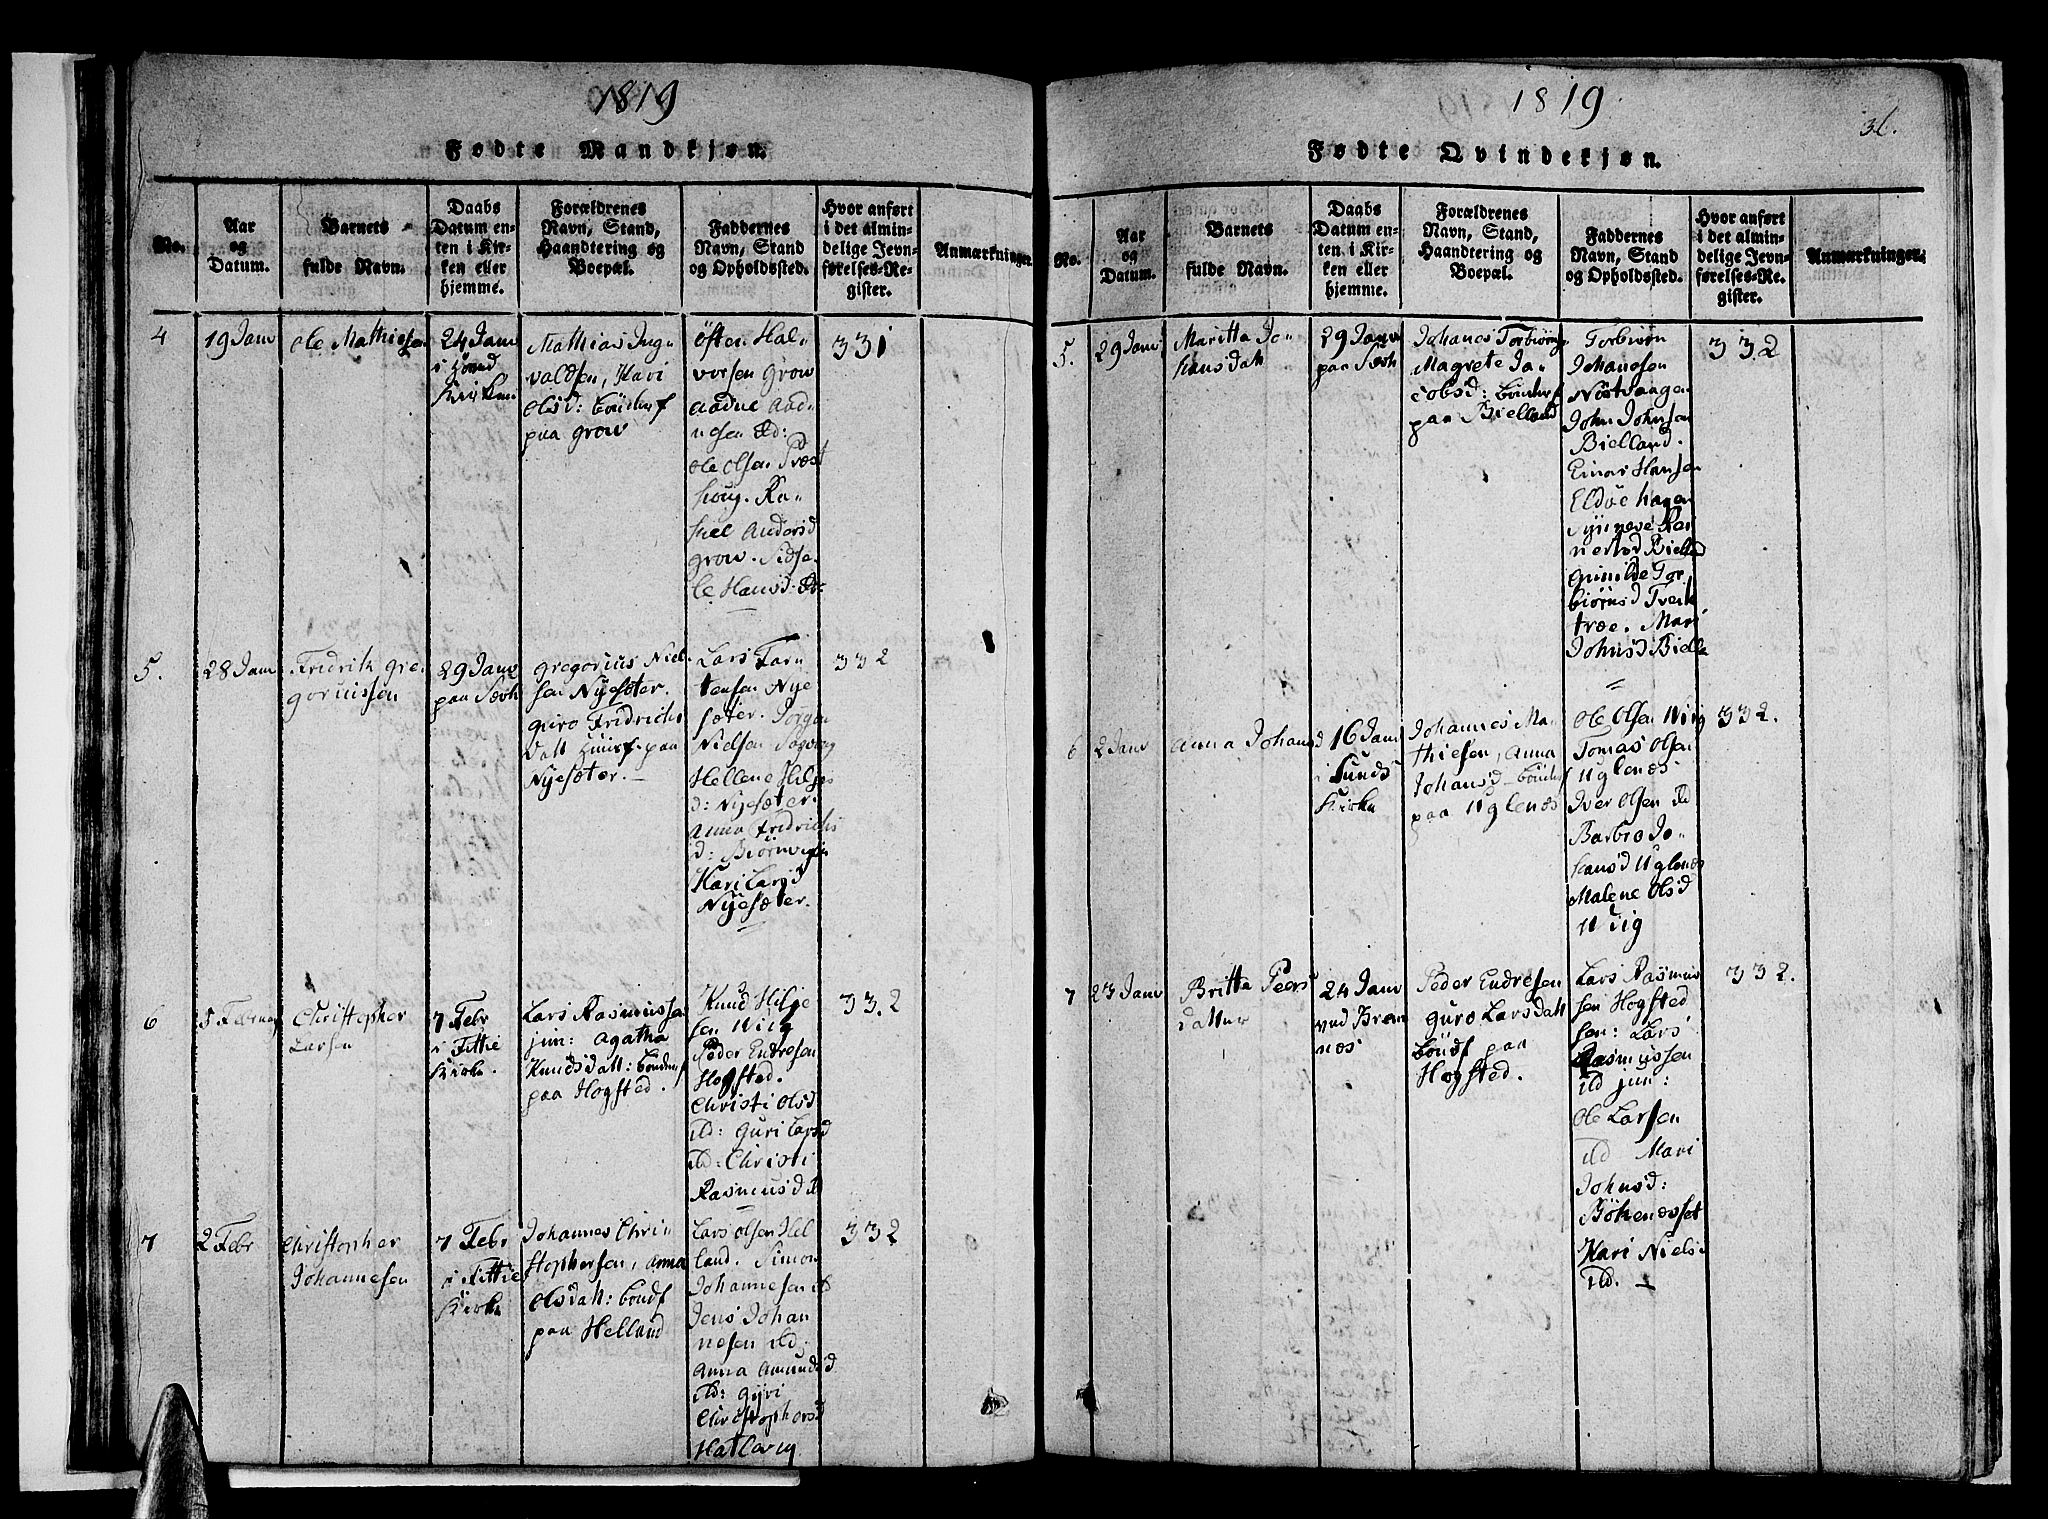 1819
Fødte Mandkjøn.
No.
Aar
og
Datum.
Barnets
fulde Navn.
Daabs
Datum en-
ten i Kir-
ken eller
hjemme.
Forældrenes
Navn, Stand,
Haandtering og
Boepæl.
Faddernes
Navn, Stand
og Opholdssted.
Hvor anført
i det almin-
delige Jevn-
førelses-Re-
gister.
Anmærkninger.
4
19 Janv
Ole Mathiesen
24 Janv
i
Kirken
Mathias Ing-
valdsen, Kari
Olsd: bönderf
paa Grow
Östen Hal-
vorsen Grow
Aadne Aad-
nesen ild:
Ole Olsen Præst
houg. Ra-
hel Andersd
Grow. Sidse-
le Hansd:
331
5.
28 Janv
Fridrik Gre-
goriussen
29 Janv
paa
Gregorius Niel-
sen Nyesæter.
Guro Fridrichs
datt huusf. paa
Nyesæter. —
Lars Tor-
tensen Nye
sæter. Jörgen
Nielsen
Hellene Helges
d: Nyesæter.
Anna Fridrichs
d:
Kari Larsd
Nyesæter.
332
6
5 Februar
Christopher
Larsen
7 Febr
i Fittie
Kirke.
Lars Rasmussen
jun: Agatha
Knudsdatt: bönderf
paa Hogsted.
Knud Helge
sen Wiig
Peder Endresen
Hogsted.
Christi Olsd
ild: Guri Larsd
ild: Christi
Rasmusd ild
332
7
2 Febr
Christopher
Johannesen
7 Febr
i Fittie
Kirke
Johannes Chri-
stophersen, Anna
Olsdatt: böndf
paa Helland
Lars Olsen Hel
land. Simon
Johannesen ild
Jens Johan
nesen ild.
Anna Amundsd
ild: Gyri
Christophersd
Hatlevig
332
1819
36.
Fødte Qvindekjøn.
No.
Aar
og
Datum.
Barnets
fulde Navn.
Daabs
Datum en-
ten i Kir-
ken eller
hjemme.
Forældrenes
Navn, Stand,
Haandtering og
Boepæl.
Faddernes
Navn, Stand
og Opholdssted.
Hvor anført
i det almin-
delige Jevn-
førelses-Re-
gister.
Anmærkninger.
5.
29 Janv
Maritta Jo-
hansdatt
29 Janv
paa
Johanes Torbiörns
Magrete Ja-
cobsd: bönderf
paa Bielland
Torbiörn
Johanesen
Nöstvaagen
John Johnsen
Bielland.
Einar Hansen
Eldöehagen
Synneve Rei
nertsd Bielld
Gunilde Tor
biörnsd Tveit
træe. Mari
Johnsd Biella
332
6
2 Janv
Anna Johansd
16 Janv
i Sunds
Kirke
Johannes Ma-
thiesen, Anna
Johansd – bönderf
paa Uglenæs
Ole Olsen Wiig
Tomas Olsen
Uglenæs
Iver Olsen ild
Barbro Jo-
hansd Uglenæs
Malene Olsd
Wiig
332.
7
23 Janv
Britta Peers
datter
24 Janv
ved Brem
næs
Peder Endresen
Guro Larsdatt
böndf paa
Hogsted.
Lars Rasmus
sen Hogsted
sen: Lars
Rasmussen
ild jun:
Ole Larsen
ild Mari
Johnsd:
Bökenæsset
Kari Nielsd
ild. —
332.